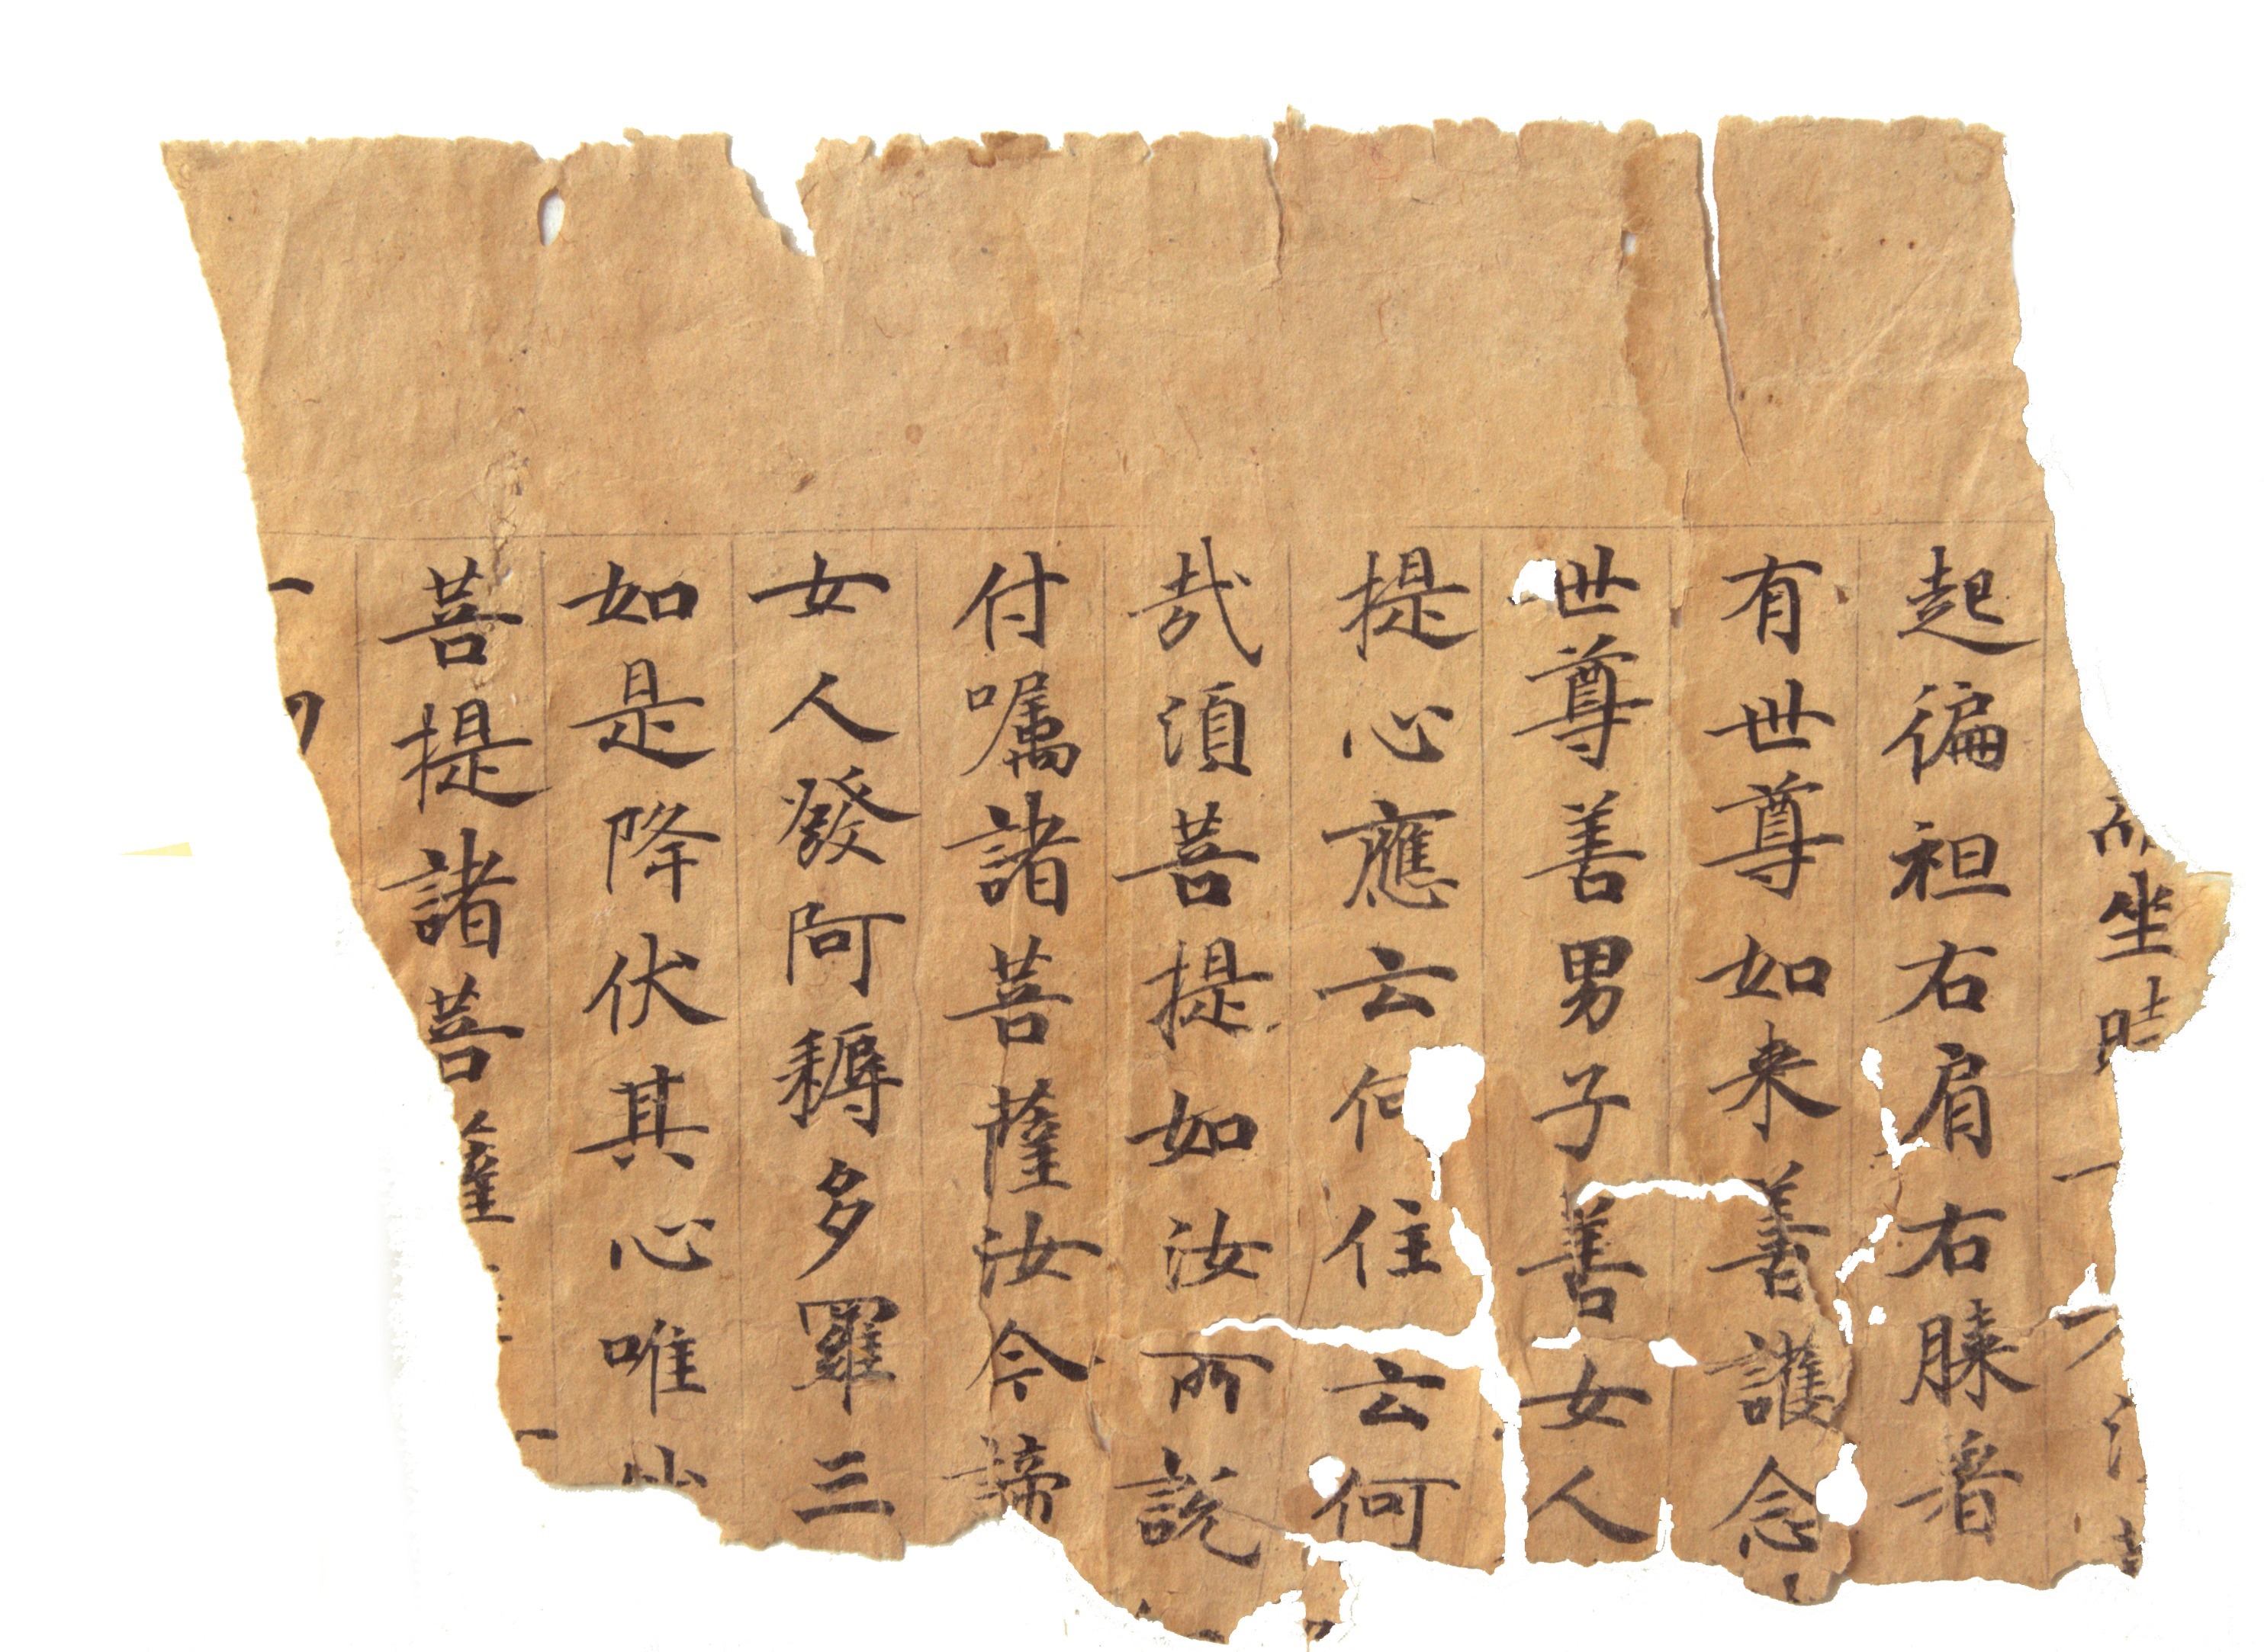 坐時
起徧袒右肩右膝着
有世尊如来善護念
世尊善男子善女人
提心應云何住云何
哉湏菩提如汝所説
付嘱諸菩薩汝今諦
女人發阿耨多羅三
如是降伏其心唯
菩提諸菩薩